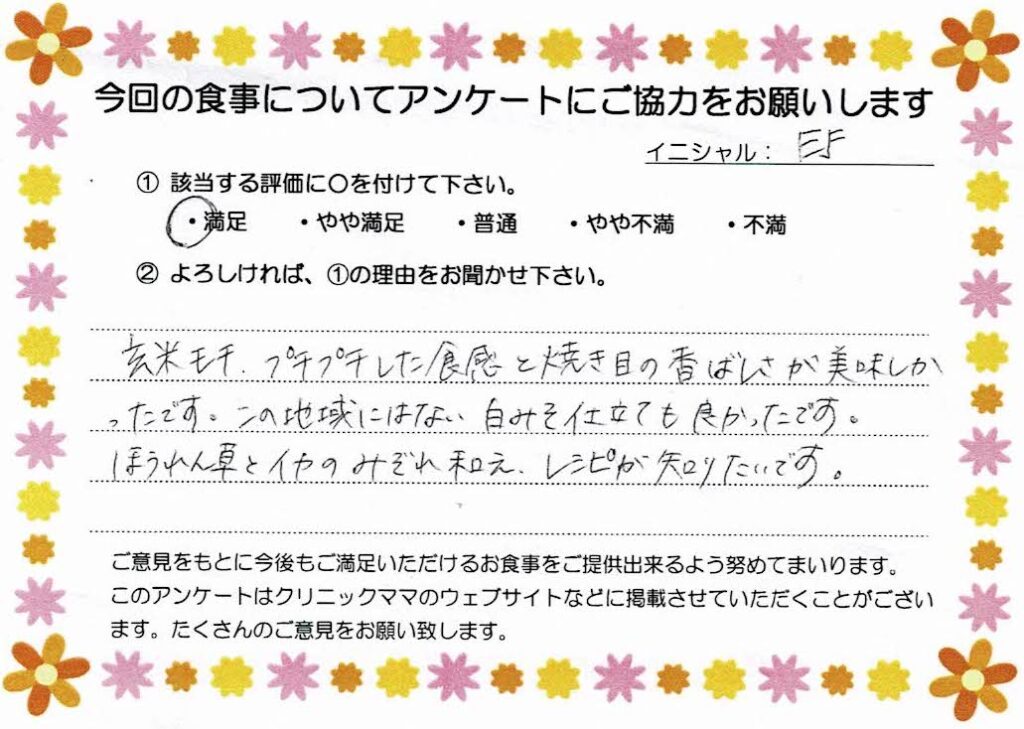 今回の食事についてアンケートにご協力をお願いします
イニシャル： EF
① 該当する評価に〇を付けて下さい。
・満足 ・やや満足 ・普通 ・やや不満 ・不満
② よろしければ、①の理由をお聞かせ下さい。
玄米モチ、プチプチした食感と焼き目の香ばしさが美味しか
ったです。この地域にはない白みそ仕立ても良かったです。
ほうれん草とイカのみぞれ和え、レシピが知りたいです。
ご意見をもとに今後もご満足いただけるお食事をご提供出来るよう努めてまいります。
このアンケートはクリニックママのウェブサイトなどに掲載させていただくことがござい
ます。たくさんのご意見をお願い致します。